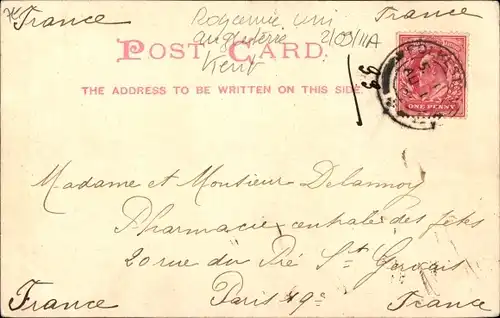 France
France
Royaume Uni
Angleterre
Kent
POST CARD.
THE ADDRESS TO BE WRITTEN ON THIS SIDE
ONE PENNY
Madame et Monsieur Delannoy
Pharmacie centrale des fêtes
20 rue du Pré St Gervais
Paris 19e
France
France